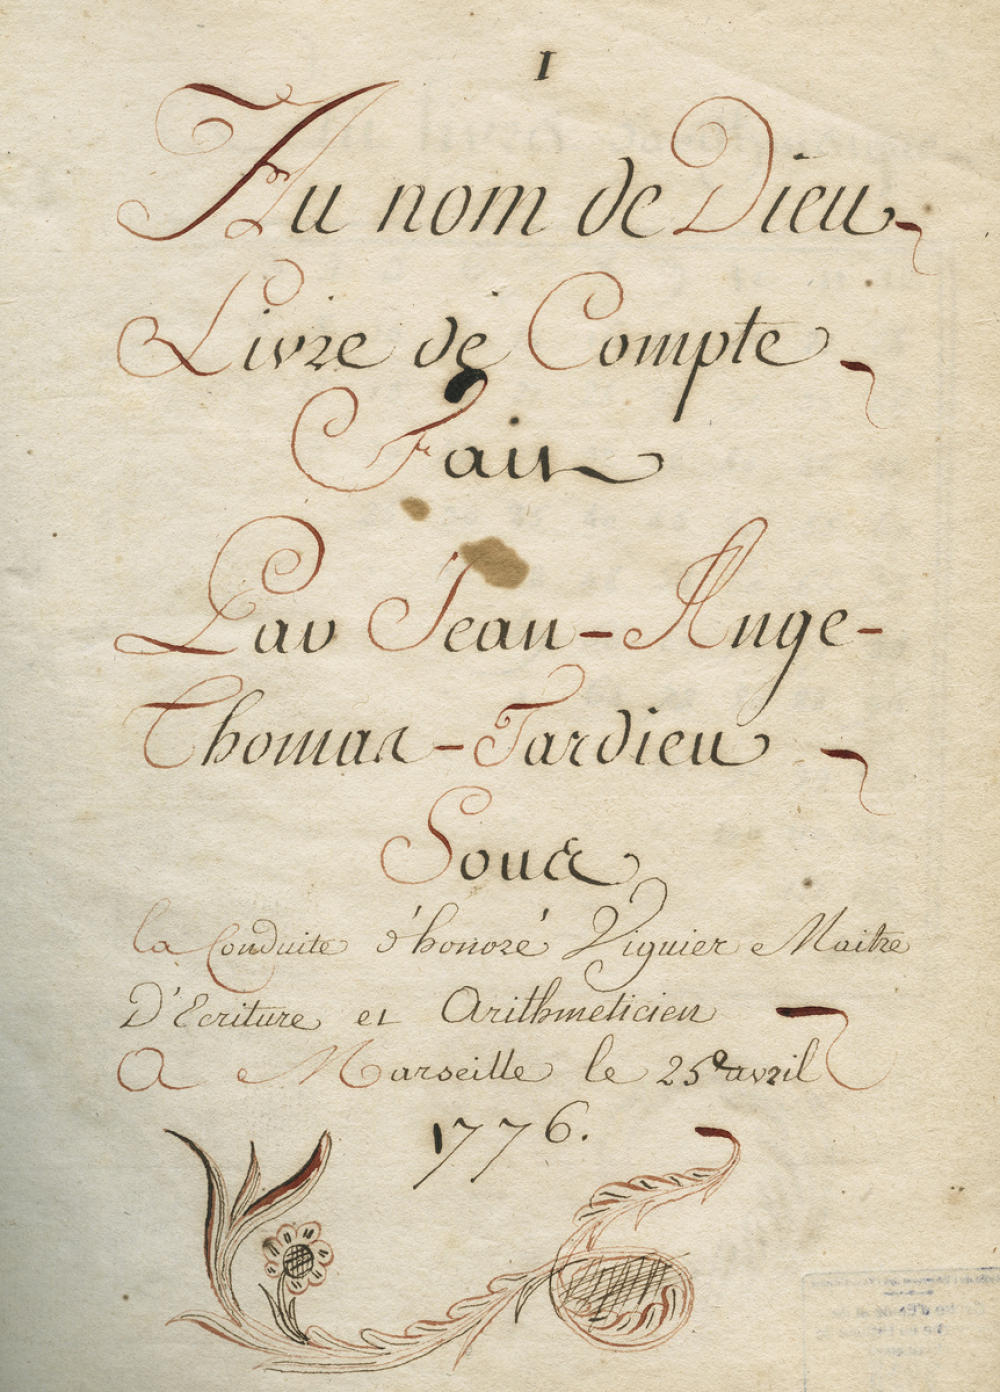 I
Au nom de Dieu
Livre de Compte
Fait
Par Jean-Ange-
Thomas-Tardieu
Sous
la Conduite d'honoré Viguier Maitre
D'Ecriture et Arithmeticien
A Marseille le 25e avril
1776.